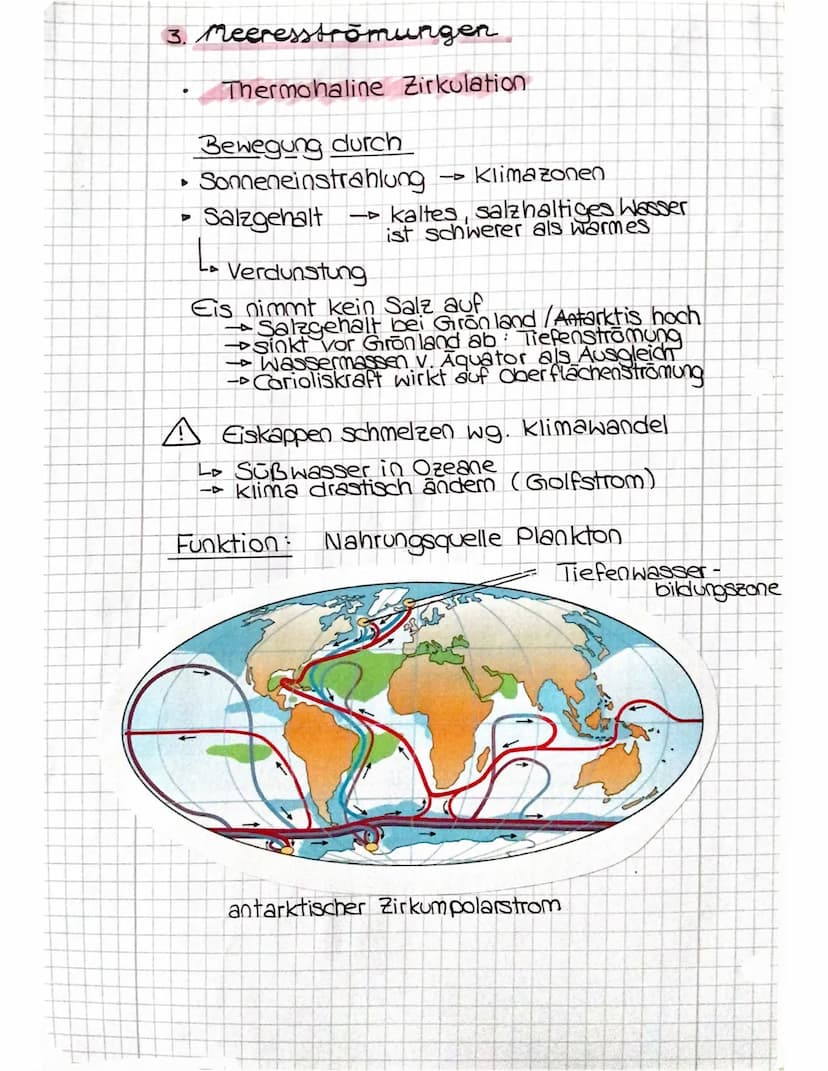 3. Meeresströmungen
· Thermohaline Zirkulation
Bewegung durch
▸ Sonneneinstrahlung → Klimazonen
▸ Salzgehalt → kaltes, salzhaltiges Wasser
ist schwerer als warmes
↳ Verdunstung
Eis nimmt kein Salz auf
→ Salzgehalt bei Grönland / Antarktis hoch
→ sinkt vor Grönland ab : Tiefenströmung
→ Wassermassen v. Äquator als Ausgleich
→ Carioliskraft wirkt auf Oberflächenströmung
⚠ Eiskappen schmelzen wg. Klimawandel
↳ Süßwasser in Ozeane
→ Klima drastisch ändern (Golfstrom)
Funktion: Nahrungsquelle Plankton
Tiefenwasser-
bildungszone
antarktischer Zirkumpolarstrom